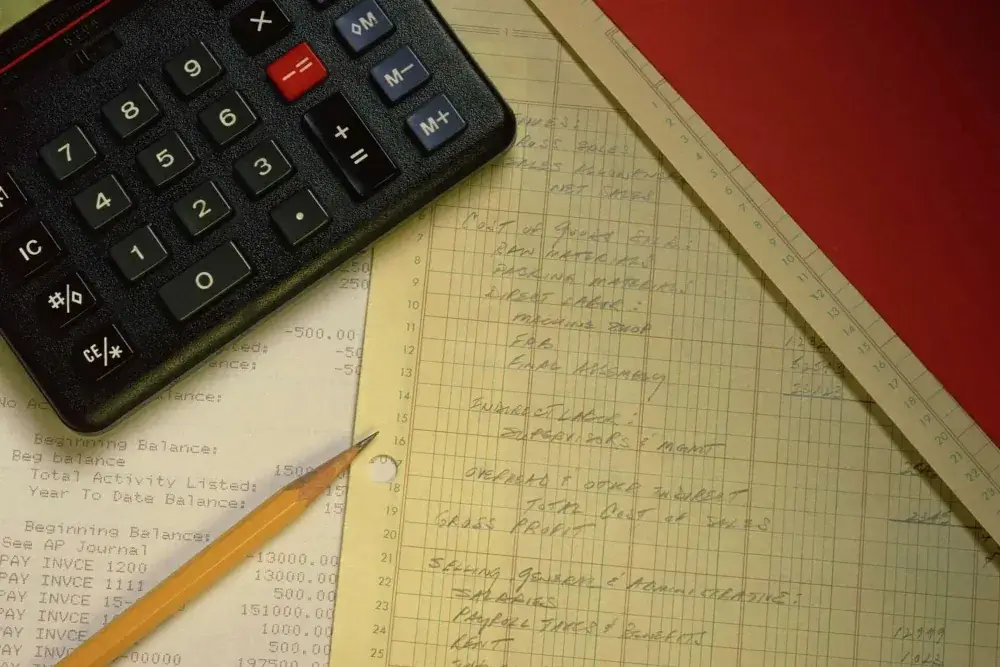 × ◊M
9 -= M-
8 6 + = M+
7 5 3
4 2 .
IC 1 0
#/◊
CE/*
250
250
-500.00
-50
-50
Balance:
Beginning Balance:
Beg balance
Total Activity Listed:
Year To Date Balance:
Beginning Balance:
See AP Journal
PAY INVCE 1200 -13000.00
PAY INVCE 1111 13000.00
PAY INVCE 15- 500.00
PAY INVCE 151000.00
PAY INVC 1000.00
500.00
-00000 197500.00
GROSS SALES
NET SALES
COST OF GOODS SOLD:
7 RAW MATERIALS
8 PACKING MATERIALS
9 DIRECT LABOR:
10 MACHINE SHOP
11 FAB
12 FINAL ASSEMBLY
13
14 INDIRECT LABOR:
15 SUPERVISORS & MGMT
16
OVERHEAD & OTHER INDIRECT
18 TOTAL COST OF SALES
19 GROSS PROFIT
20
21 SELLING, GENERAL & ADMINISTRATIVE:
22 SALARIES
23 PAYROLL TAXES & BENEFITS
24 RENT
25
1
2
3
4
5
6
7
8
9
10
11
12
13
14
15
16
17
18
19
20
21
22
23